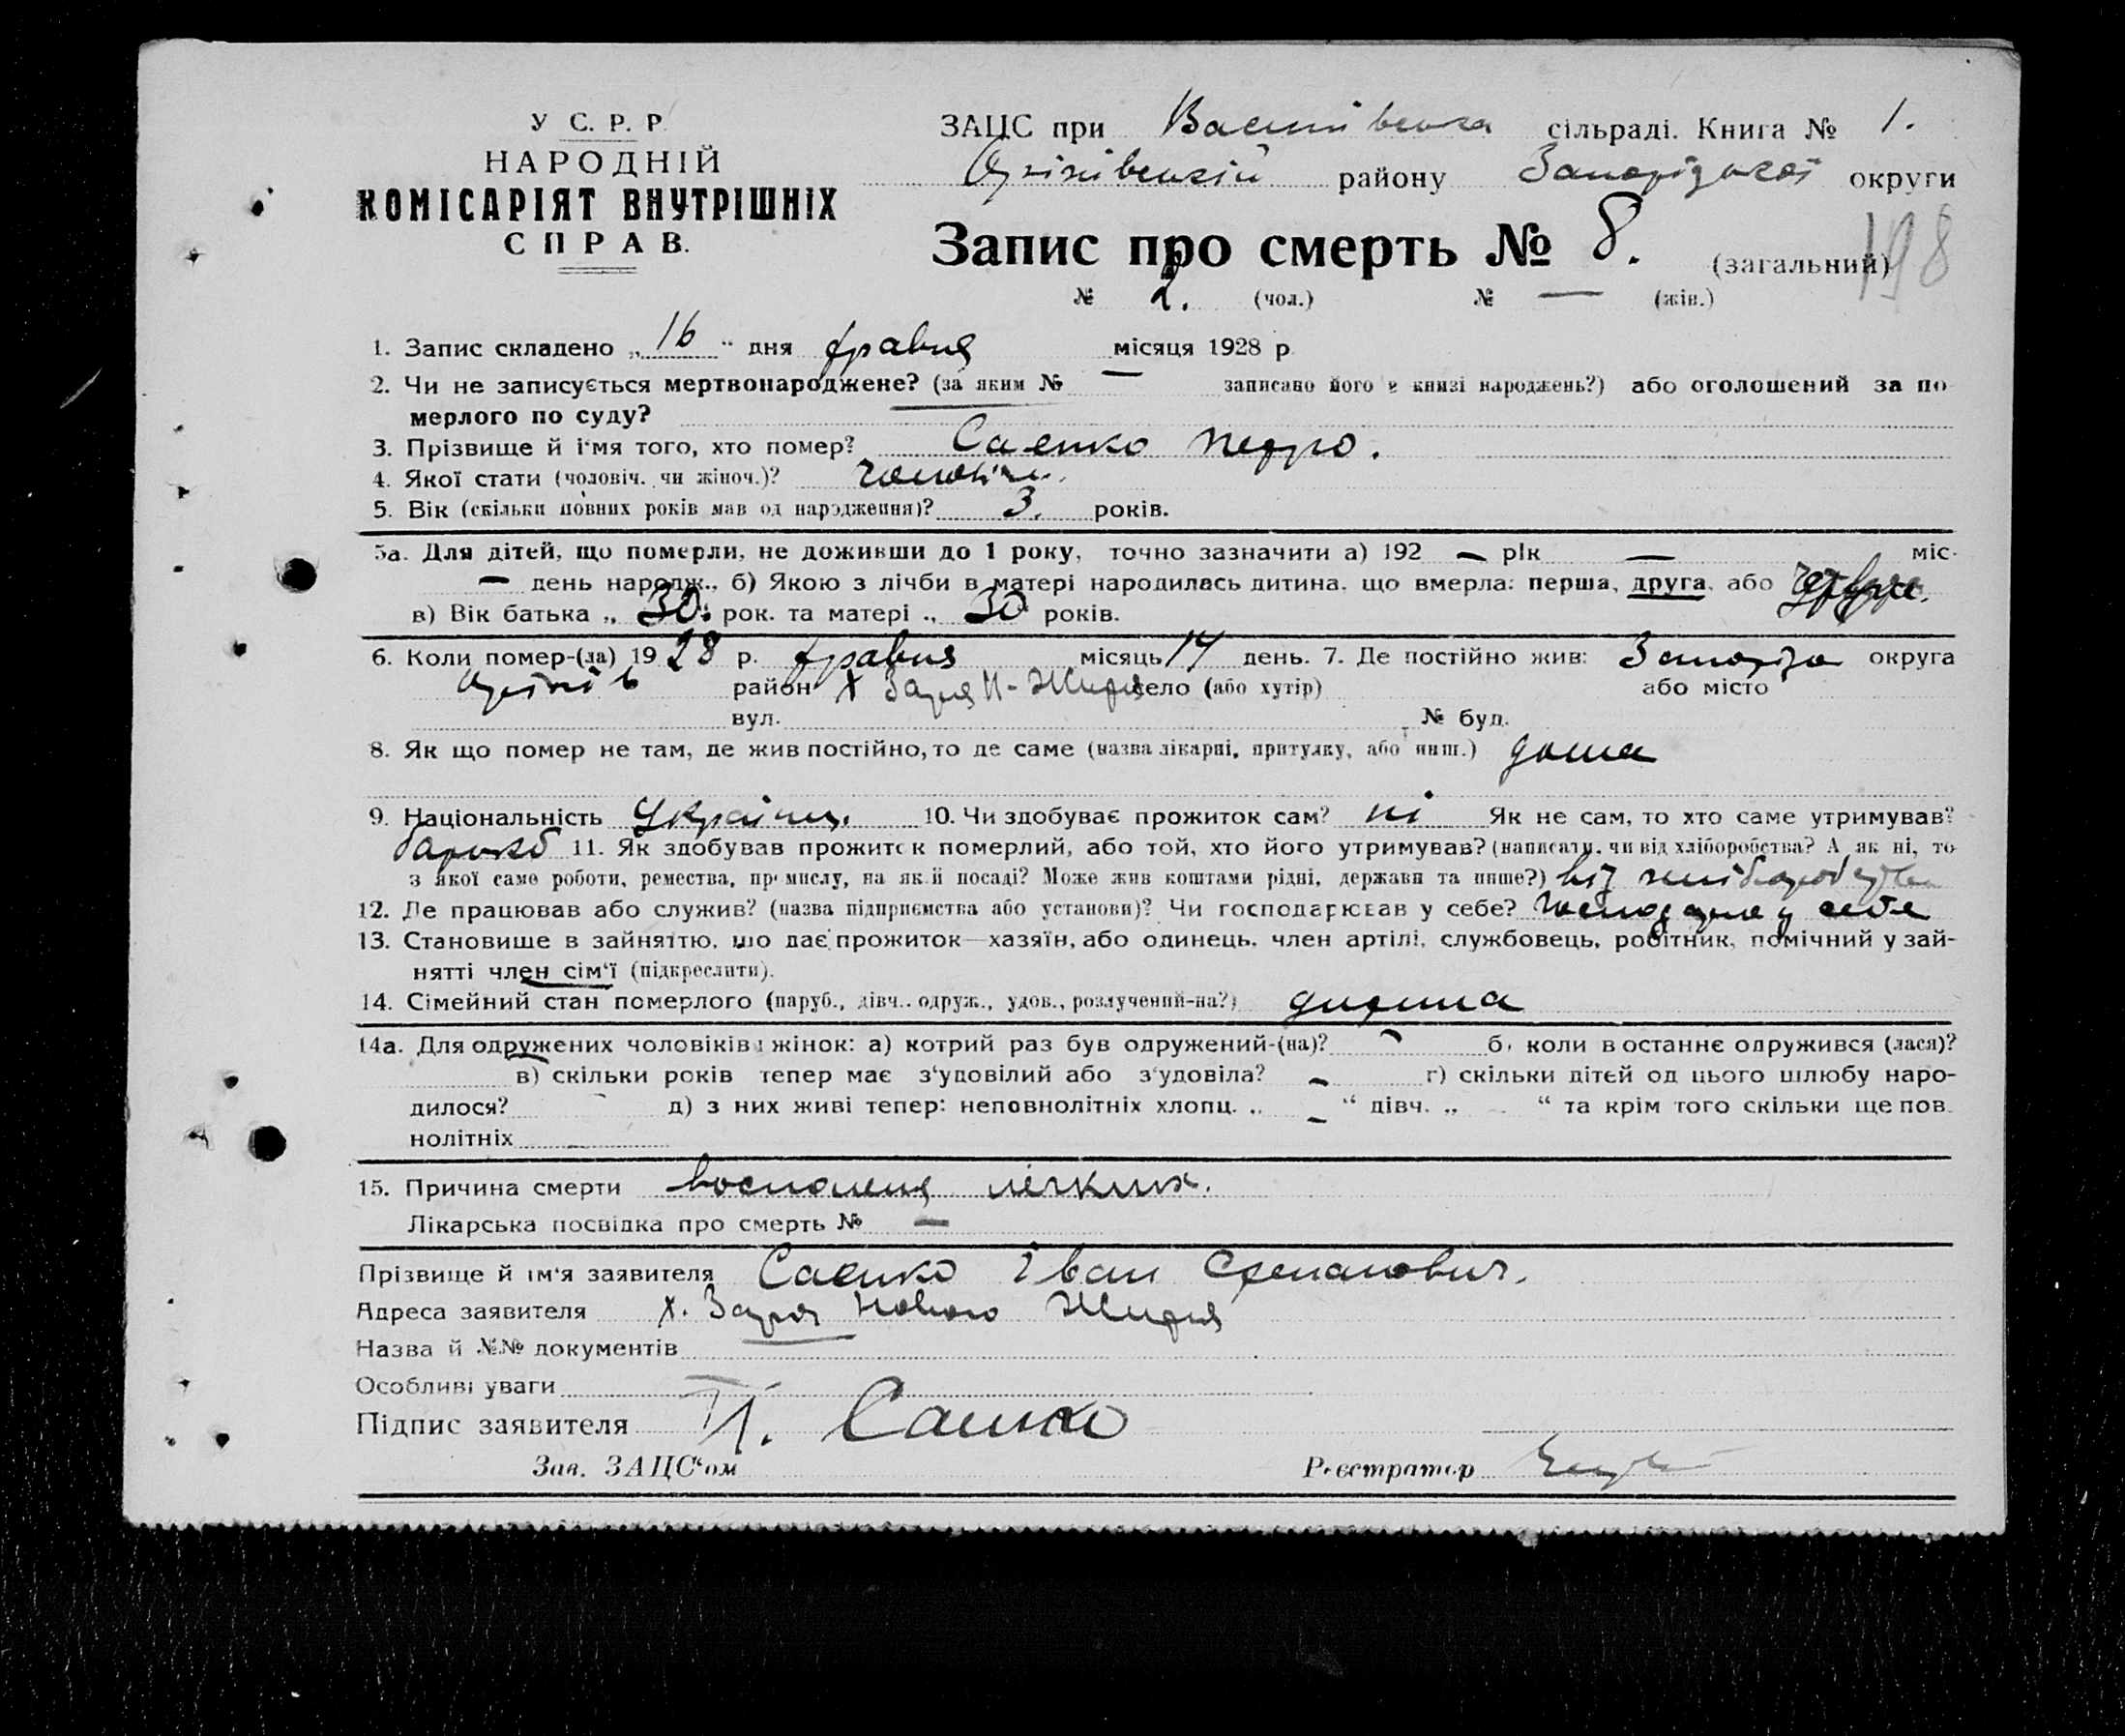 У С. Р. Р.
НАРОДНІЙ
КОМІСАРІЯТ ВНУТРІШНІХ
СПРАВ.
ЗАЦС при сільраді. Книга № 1.
району Запорізької округи
Запис про смерть № 8. (загальний) 198
№ 2. (чол.) № — (жін.)
1. Запис складено „16“ дня травня місяця 1928 р.
2. Чи не записується мертвонароджене? (за яким № — записано його в книзі народжень?) або оголошений за по
мерлого по суду?
3. Прізвище й і'мя того, хто помер? Саенко Петро.
4. Якої стати (чоловіч. чи жіноч.)?
5. Вік (скільки повних років мав од народження)? 3. років.
5а. Для дітей, що померли, не доживши до 1 року, точно зазначити а) 192 — рік — міс.
— день народж., б) Якою з лічби в матері народилась дитина, що вмерла: перша, друга, або
в) Вік батька „ 30. рок. та матері „ 30 років.
6. Коли помер-(ла) 1928 р. травня місяць 14 день. 7. Де постійно жив: округа
район х Заря Н-Життя село (або хутір) або місто
вул. № буд.
8. Як що помер не там, де жив постійно, то де саме (назва лікарні, притулку, або инш.) дома
9. Національність Українец. 10. Чи здобуває прожиток сам? ні Як не сам, то хто саме утримував?
батько 11. Як здобував прожиток померлий, або той, хто його утримував? (написати, чи від хліборобства? А як ні, то
з якої саме роботи, ремества, промислу, на якій посаді? Може жив коштами рідні, держави та инше?) від
12. Де працював або служив? (назва підприємства або установи)? Чи господарював у себе? у себе
13. Становище в зайняттю, що дає прожиток—хазяїн, або одинець, член артілі, службовець, робітник, помічний у зай-
нятті член сім'ї (підкреслити).
14. Сімейний стан померлого (паруб., дівч., одруж., удов., розлучений-на?) дитина
14а. Для одружених чоловіків і жінок: а) котрий раз був одружений-(на)? — б) коли востаннє одружився (лася)?
в) скільки років тепер має з'удовілий або з'удовіла? — г) скільки дітей од цього шлюбу наро-
дилося? — д) з них живі тепер: неповнолітніх хлопц. „ — “ дівч. „ “ та крім того скільки ще пов.
нолітніх
15. Причина смерти воспаленя легких.
Лікарська посвідка про смерть № —
Прізвище й ім'я заявителя Саенко Іван Степанович.
Адреса заявителя х. Заря Нового Життя
Назва й №№ документів
Особливі уваги
Підпис заявителя Саенко
Зав. ЗАЦС'ом Реєстратор